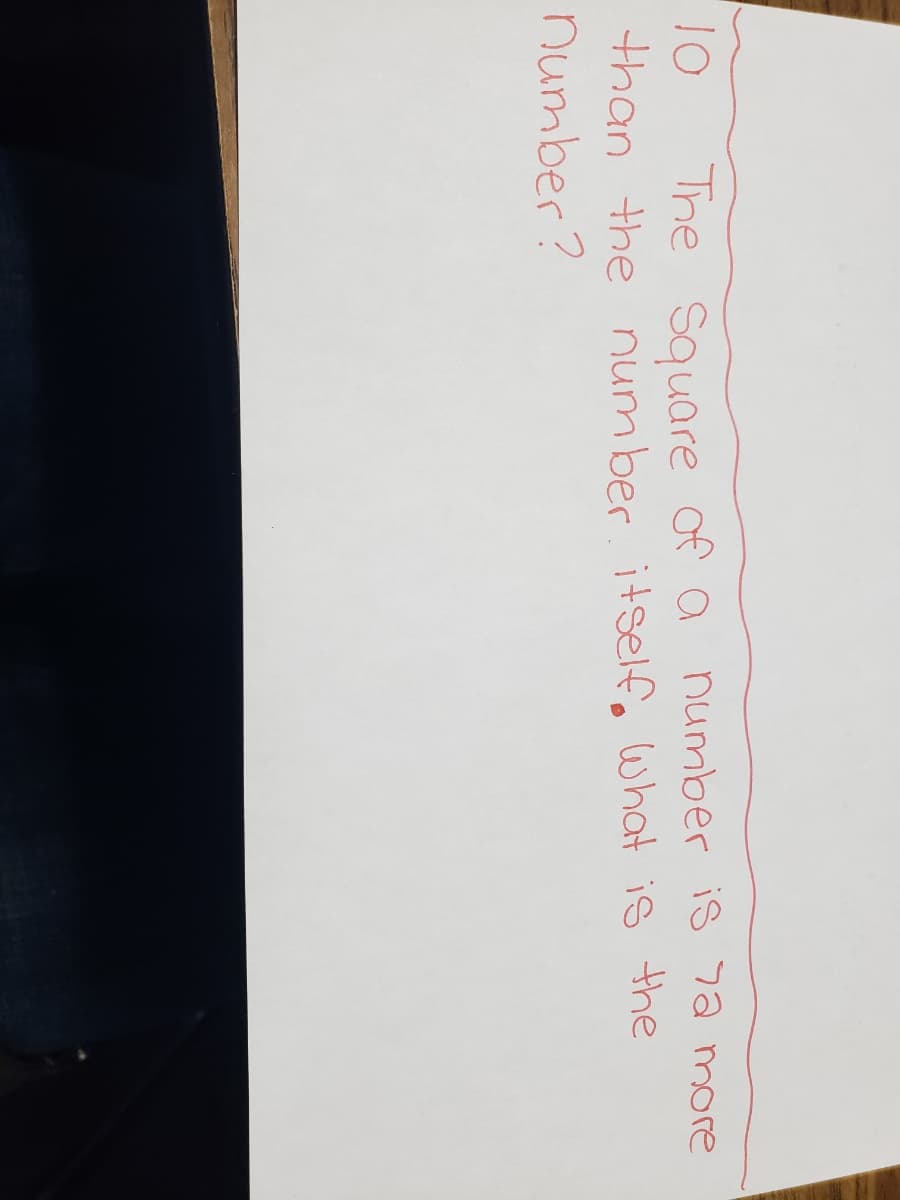 10 The Square of a number is 72 more
than the number itself. What is the
number?